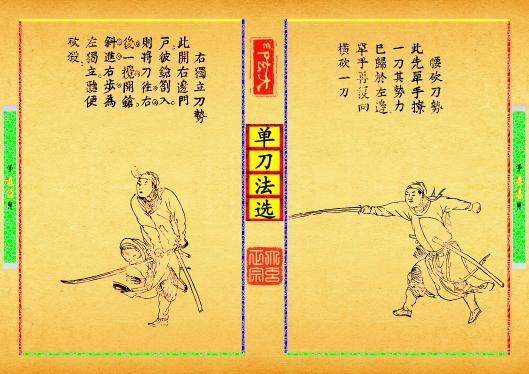 腰砍刀勢
此先單手撩
一刀其勢力
已歸於左邊
單手再復向
橫砍一刀
单刀法选
右獨立刀勢
此開右邊門
戶彼鎗劄入
則將刀往右
後一攪開鎗
斜進右步為
左獨立聽便
砍殺